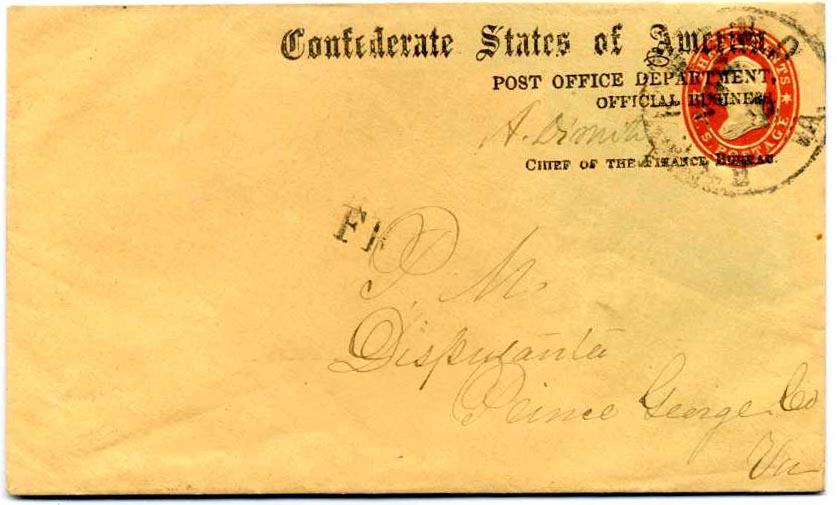 Confederate States of America,
POST OFFICE DEPARTMENT,
OFFICIAL BUSINESS
A. Dimitry
CHIEF OF THE FINANCE BUREAU.
CENTS
U.S POSTAGE
VA.
P. M.
Disputanta
Prince George Co
Va